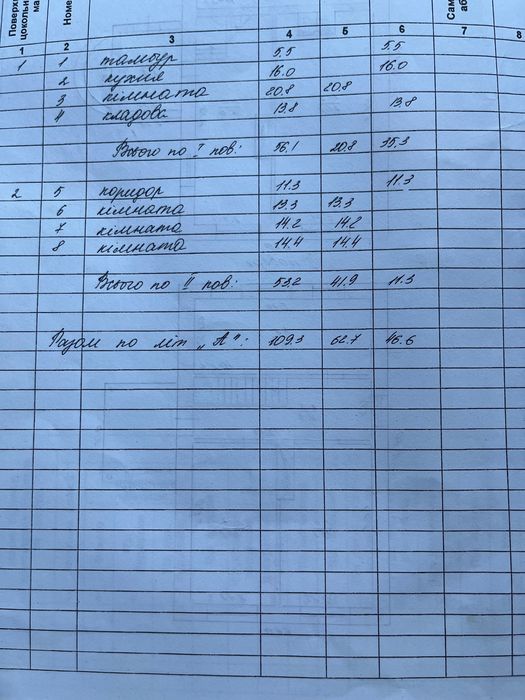 Поверх
цокольн
ма
Номе
Сам
аб
1 2 3 4 5 6 7 8
1 1 тамбур 5.5 5.5
2 кухня 16.0 16.0
3 кімната 20.8 20.8
4 кладова 13.8 13.8
Всього по I пов: 56.1 20.8 35.3
2 5 коридор 11.3 11.3
6 кімната 13.3 13.3
7 кімната 14.2 14.2
8 кімната 14.4 14.4
Всього по II пов: 53.2 41.9 11.3
Разом по літ „А": 109.3 62.7 46.6